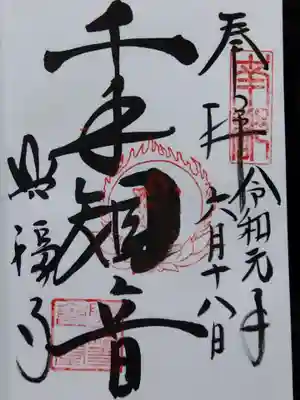 奉拝
令和元年
六月十八日
千手観音
興福寺